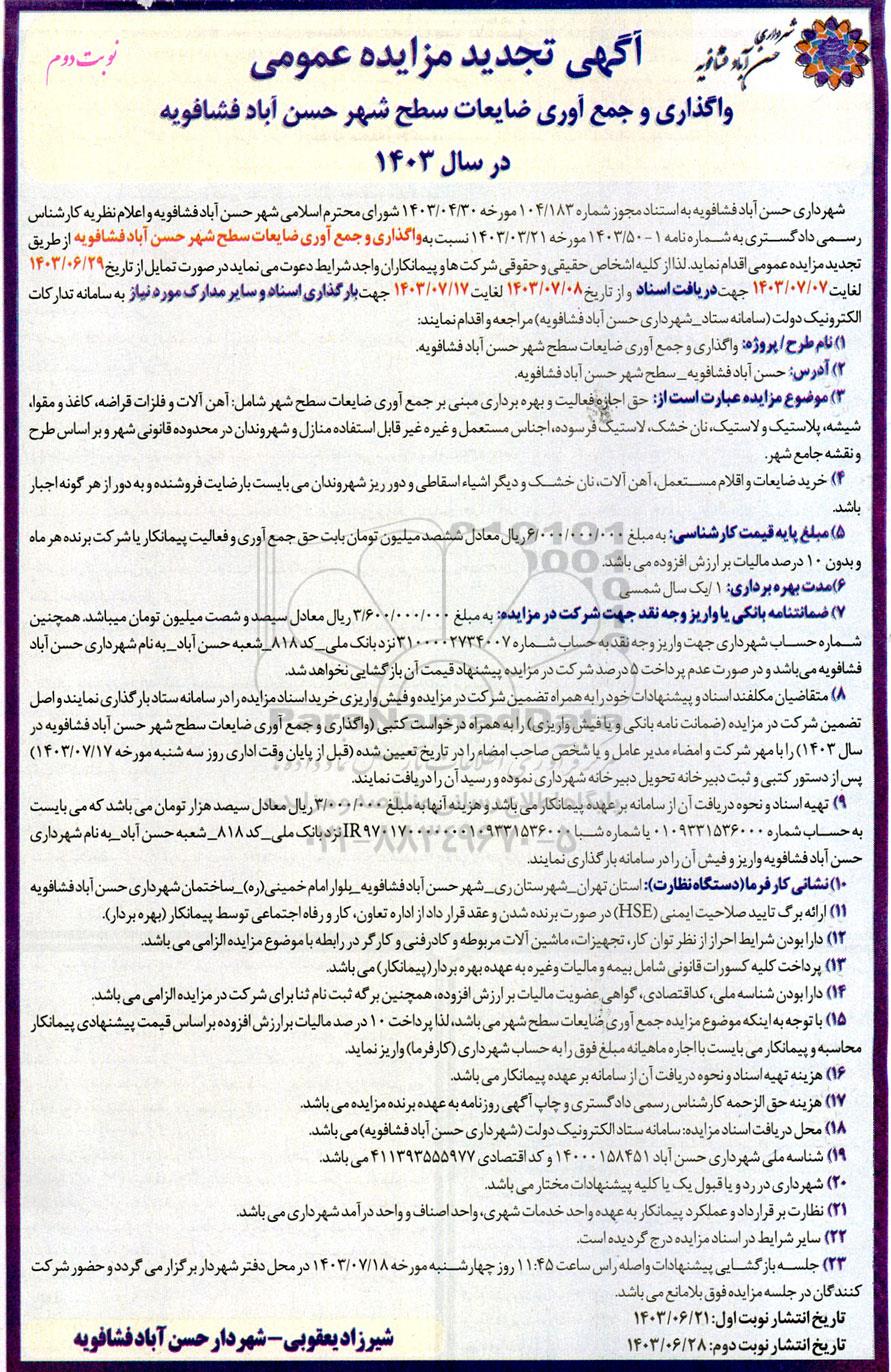 شهرداری
حسن آباد فشافویه
آگهی تجدید مزایده عمومی
نوبت دوم
واگذاری و جمع آوری ضایعات سطح شهر حسن آباد فشافویه
در سال ۱۴۰۳
شهرداری حسن آباد فشافویه به استناد مجوز شماره ۱۰۴/۱۸۳ مورخه ۱۴۰۳/۰۴/۳۰ شورای محترم اسلامی شهر حسن آباد فشافویه و اعلام نظریه کارشناس
رسمی دادگستری به شماره نامه ۱-۱۴۰۳/۵۰ مورخه ۱۴۰۳/۰۳/۲۱ نسبت به واگذاری و جمع آوری ضایعات سطح شهر حسن آباد فشافویه از طریق
تجدید مزایده عمومی اقدام نماید. لذا از کلیه اشخاص حقیقی و حقوقی شرکت ها و پیمانکاران واجد شرایط دعوت می نماید در صورت تمایل از تاریخ ۱۴۰۳/۰۶/۲۹
لغایت ۱۴۰۳/۰۷/۰۷ جهت دریافت اسناد و از تاریخ ۱۴۰۳/۰۷/۰۸ لغایت ۱۴۰۳/۰۷/۱۷ جهت بارگذاری اسناد و سایر مدارک مورد نیاز به سامانه تدارکات
الکترونیک دولت (سامانه ستاد_شهرداری حسن آباد فشافویه) مراجعه و اقدام نمایند:
۱) نام طرح / پروژه: واگذاری و جمع آوری ضایعات سطح شهر حسن آباد فشافویه.
۲) آدرس: حسن آباد فشافویه_سطح شهر حسن آباد فشافویه.
۳) موضوع مزایده عبارت است از: حق اجازه فعالیت و بهره برداری مبنی بر جمع آوری ضایعات سطح شهر شامل: آهن آلات و فلزات قراضه، کاغذ و مقوا،
شیشه، پلاستیک و لاستیک، نان خشک، لاستیک فرسوده، اجناس مستعمل و غیره غیر قابل استفاده منازل و شهروندان در محدوده قانونی شهر و بر اساس طرح
و نقشه جامع شهر.
۴) خرید ضایعات و اقلام مستعمل، آهن آلات، نان خشک و دیگر اشیاء اسقاطی و دور ریز شهروندان می بایست با رضایت فروشنده و به دور از هر گونه اجبار
باشد.
۵) مبلغ پایه قیمت کارشناسی: به مبلغ ۶/۰۰۰/۰۰۰/۰۰۰ ریال معادل ششصد میلیون تومان بابت حق جمع آوری و فعالیت پیمانکار یا شرکت برنده هر ماه
و بدون ۱۰ درصد مالیات بر ارزش افزوده می باشد.
۶) مدت بهره برداری: ۱ /یک سال شمسی
۷) ضمانتنامه بانکی یا واریز وجه نقد جهت شرکت در مزایده: به مبلغ ۳/۶۰۰/۰۰۰/۰۰۰ ریال معادل سیصد و شصت میلیون تومان میباشد. همچنین
شماره حساب شهرداری جهت واریز وجه نقد به حساب شماره ۳۱۰۰۰۰۲۷۳۴۰۰۷ نزد بانک ملی_کد ۸۱۸_شعبه حسن آباد_به نام شهرداری حسن آباد
فشافویه می‌باشد و در صورت عدم پرداخت ۵ درصد شرکت در مزایده پیشنهاد قیمت آن بازگشایی نخواهد شد.
۸) متقاضیان مکلفند اسناد و پیشنهادات خود را به همراه تضمین شرکت در مزایده و فیش واریزی خرید اسناد مزایده را در سامانه ستاد بارگذاری نمایند و اصل
تضمین شرکت در مزایده (ضمانت نامه بانکی و یا فیش واریزی) را به همراه درخواست کتبی (واگذاری و جمع آوری ضایعات سطح شهر حسن آباد فشافویه در
سال ۱۴۰۳) را با مهر شرکت و امضاء مدیر عامل و یا شخص صاحب امضاء را در تاریخ تعیین شده (قبل از پایان وقت اداری روز سه شنبه مورخه ۱۴۰۳/۰۷/۱۷)
پس از دستور کتبی و ثبت دبیرخانه تحویل دبیرخانه شهرداری نموده و رسید آن را دریافت نمایند.
۹) تهیه اسناد و نحوه دریافت آن از سامانه بر عهده پیمانکار می باشد و هزینه آنها به مبلغ ۳/۰۰۰/۰۰۰ ریال معادل سیصد هزار تومان می باشد که می بایست
به حساب شماره ۰۱۰۹۳۳۱۵۳۶۰۰۰ یا شماره شبا IR۹۷۰۱۷۰۰۰۰۰۰۰۱۰۹۳۳۱۵۳۶۰۰۰ نزد بانک ملی_کد ۸۱۸_شعبه حسن آباد_به نام شهرداری
حسن آباد فشافویه واریز و فیش آن را در سامانه بارگذاری نمایند.
۱۰) نشانی کارفرما (دستگاه نظارت): استان تهران_شهرستان ری_شهر حسن آباد فشافویه_بلوار امام خمینی(ره)_ساختمان شهرداری حسن آباد فشافویه
۱۱) ارائه برگ تایید صلاحیت ایمنی (HSE) در صورت برنده شدن و عقد قرارداد از اداره تعاون، کار و رفاه اجتماعی توسط پیمانکار (بهره بردار).
۱۲) دارا بودن شرایط احراز از نظر توان کار، تجهیزات، ماشین آلات مربوطه و کادر فنی و کارگر در رابطه با موضوع مزایده الزامی می باشد.
۱۳) پرداخت کلیه کسورات قانونی شامل بیمه و مالیات و غیره به عهده بهره بردار (پیمانکار) می باشد.
۱۴) دارا بودن شناسه ملی، کد اقتصادی، گواهی عضویت مالیات بر ارزش افزوده، همچنین برگه ثبت نام ثنا برای شرکت در مزایده الزامی می باشد.
۱۵) با توجه به اینکه موضوع مزایده جمع آوری ضایعات سطح شهر می باشد، لذا پرداخت ۱۰ درصد مالیات بر ارزش افزوده بر اساس قیمت پیشنهادی پیمانکار
محاسبه و پیمانکار می بایست با اجاره ماهیانه مبلغ فوق را به حساب شهرداری (کارفرما) واریز نماید.
۱۶) هزینه تهیه اسناد و نحوه دریافت آن از سامانه بر عهده پیمانکار می باشد.
۱۷) هزینه حق الزحمه کارشناس رسمی دادگستری و چاپ آگهی روزنامه به عهده برنده مزایده می باشد.
۱۸) محل دریافت اسناد مزایده: سامانه ستاد الکترونیک دولت (شهرداری حسن آباد فشافویه) می باشد.
۱۹) شناسه ملی شهرداری حسن آباد ۱۴۰۰۰۱۵۸۴۵۱ و کد اقتصادی ۴۱۱۳۹۳۵۵۵۹۷۷ می باشد.
۲۰) شهرداری در رد و یا قبول یک یا کلیه پیشنهادات مختار می باشد.
۲۱) نظارت بر قرارداد و عملکرد پیمانکار به عهده واحد خدمات شهری، واحد اصناف و واحد درآمد شهرداری می باشد.
۲۲) سایر شرایط در اسناد مزایده درج گردیده است.
۲۳) جلسه بازگشایی پیشنهادات واصله راس ساعت ۱۱:۴۵ روز چهارشنبه مورخه ۱۴۰۳/۰۷/۱۸ در محل دفتر شهردار برگزار می گردد و حضور شرکت
کنندگان در جلسه مزایده فوق بلامانع می باشد.
تاریخ انتشار نوبت اول: ۱۴۰۳/۰۶/۲۱
تاریخ انتشار نوبت دوم: ۱۴۰۳/۰۶/۲۸
شیرزاد یعقوبی – شهردار حسن آباد فشافویه
ParsNamadData
۰۲۱-۸۸۳۴۹۶۷۰-۵